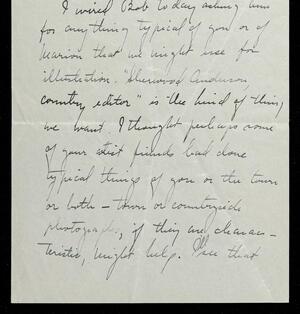 I wired Bob today asking him
for anything typical of you or of
Marion that we might use for
illustration. "Sherwood Anderson,
country editor" is the kind of thing
we want. I thought perhaps some
of your artist friends had done
typical things of you or the town
or both – town or countryside
photographs, if they are charac-
teristic, might help. I see that